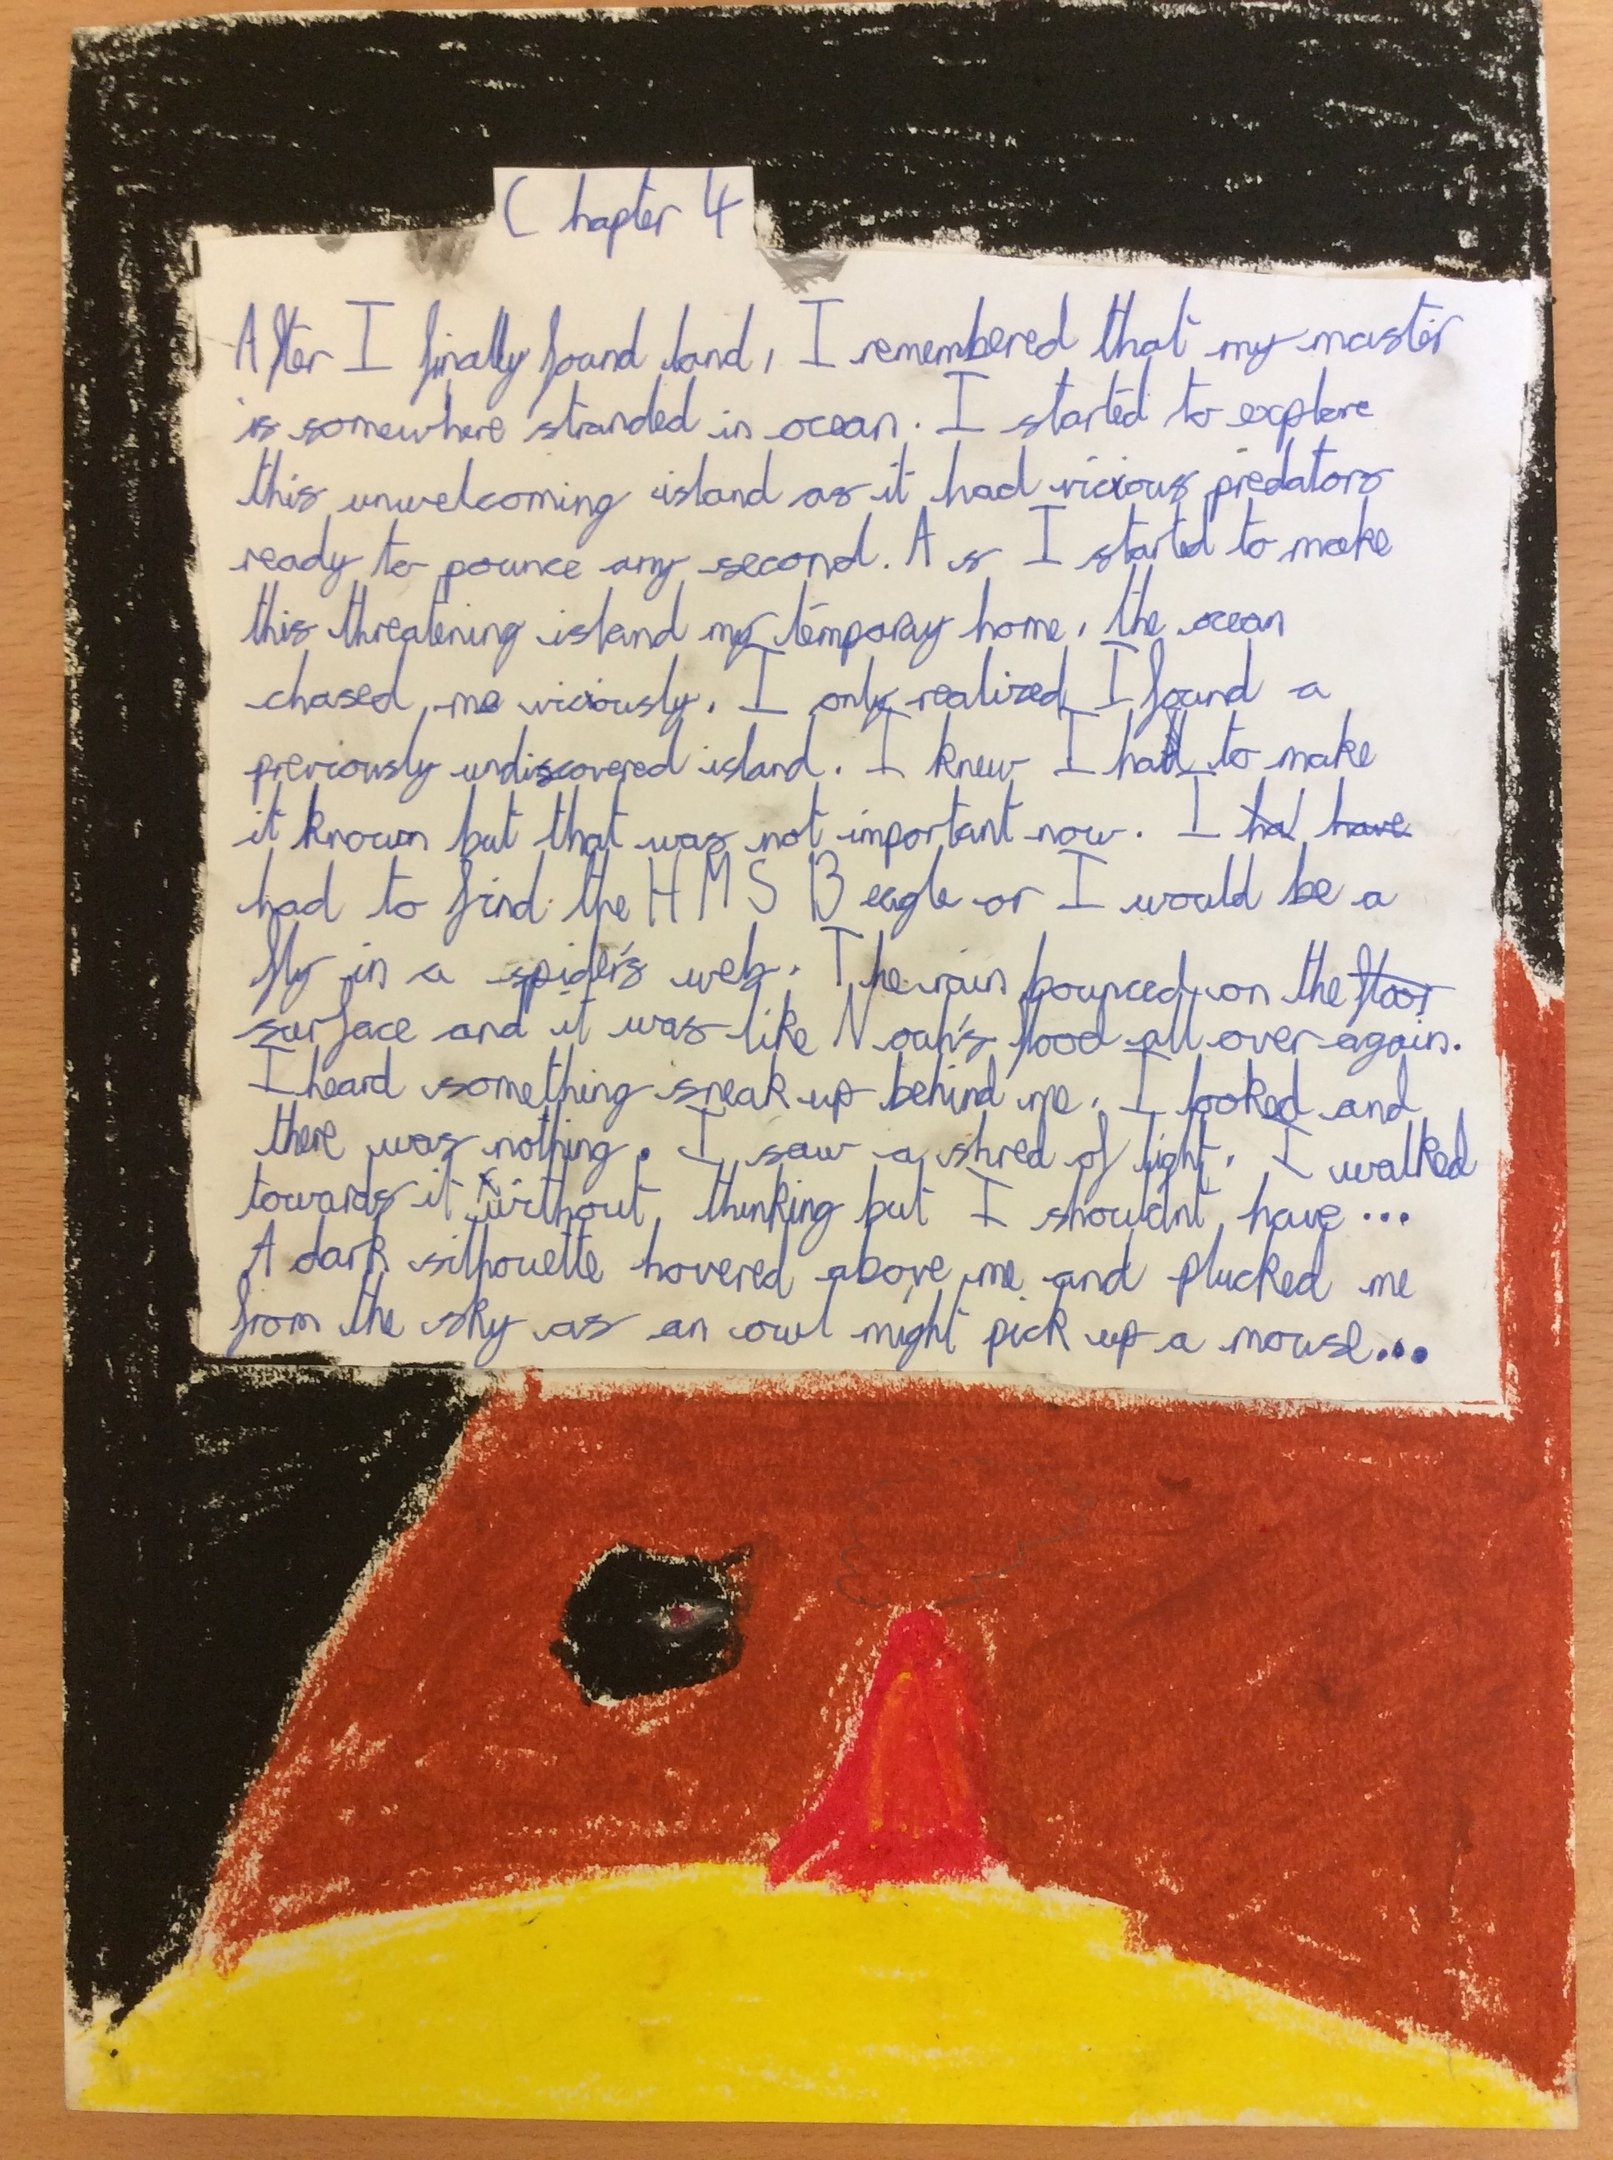 Chapter 4
After I finally found land, I remembered that my master
is somewhere stranded in ocean. I started to explore
this unwelcoming island as it had vicious predators
ready to pounce any second. As I started to make
this threatening island my temporay home, the ocean
chased me viciously. I only realized I found a
previously undiscovered island. I knew I had to make
it known but that was not important now. I ha have
had to find the HMS Beagle or I would be a
fly in a spider's web. The rain bounced on the floor
surface and it was like Noah's flood all over again.
I heard something sneak up behind me. I looked and
there was nothing. I saw a shred of light. I walked
towards it without thinking but I shouldn't have...
A dark silhouette hovered above me and plucked me
from the sky as an owl might pick up a mouse...